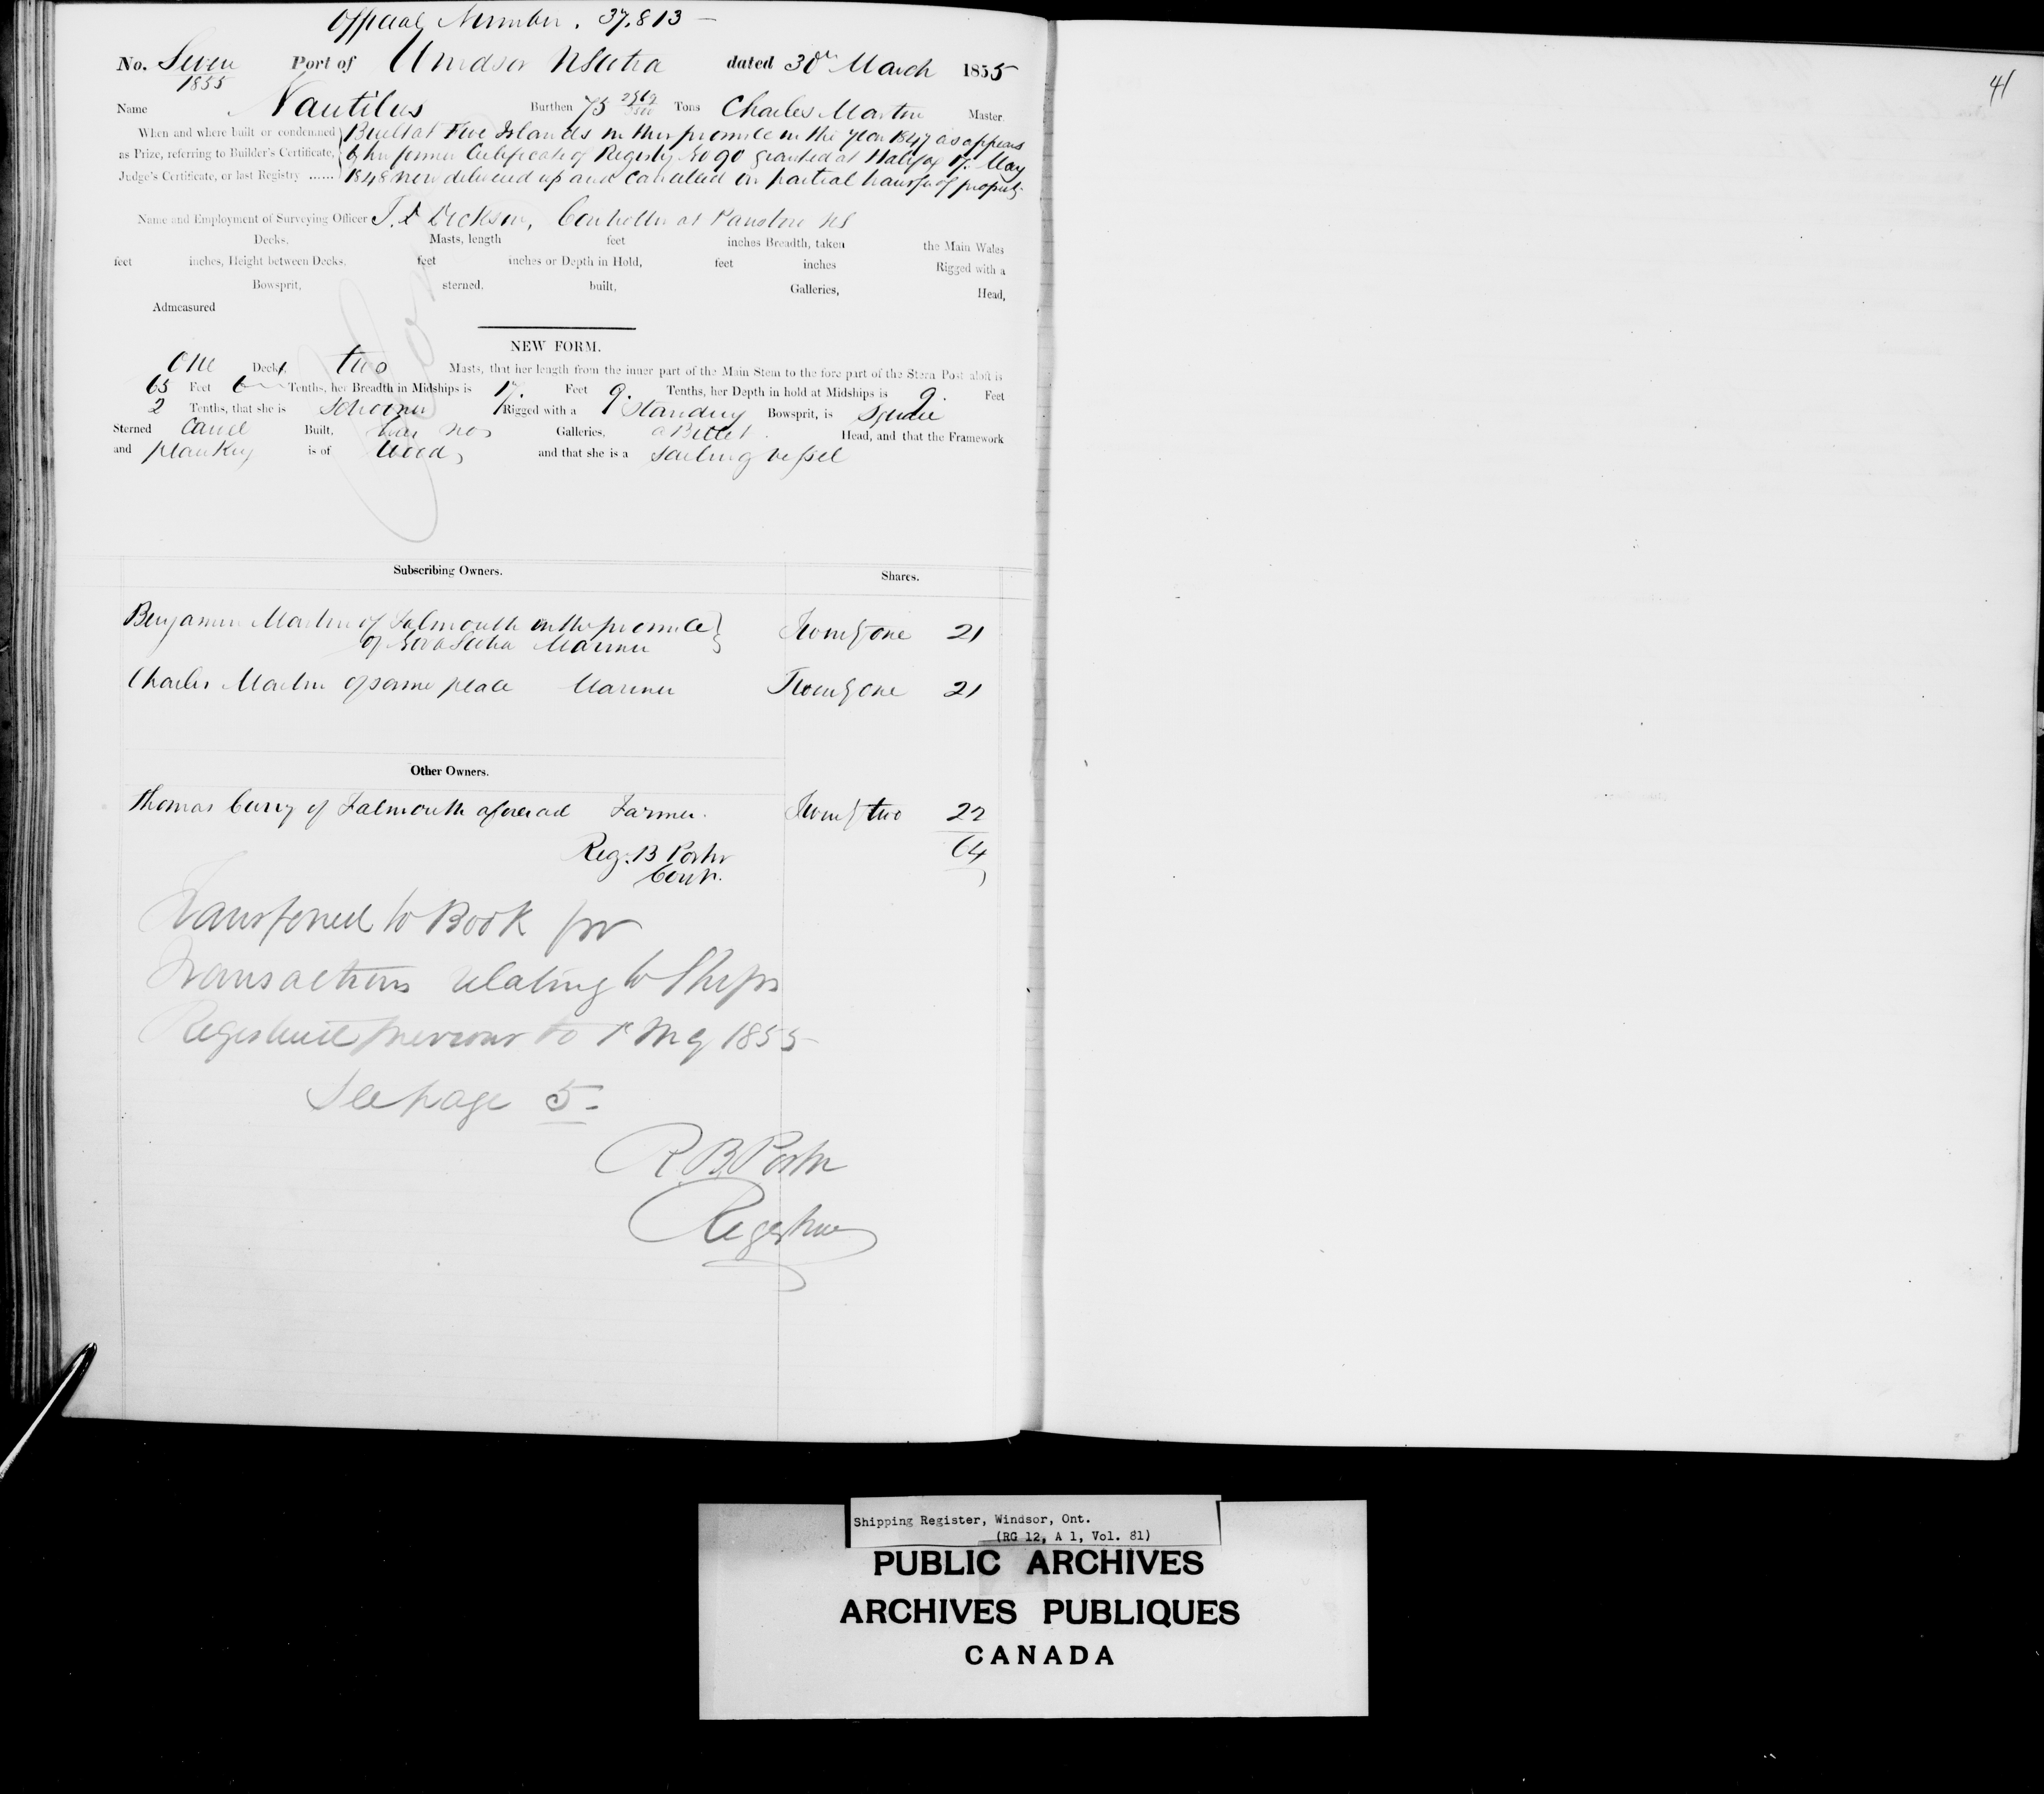 Official Number. 37.813 —
No. Seven Port of Windsor N Scotia dated 30th March 1855
1855
Name Nautilus Burthen 75 Tons Charles Martin Master.
When and where built or condemned Built at Five Islands in this province in the year 1847 as appears
as Prize, referring to Builder's Certificate, by her former Certificate of Registry No 90 granted at Halifax 17. May
Judge's Certificate, or last Registry ...... 1848 now delivered up and cancelled on partial transfer of property
Name and Employment of Surveying Officer Dickson, Controller at N S
Decks, Masts, length feet inches Breadth, taken the Main Wales
feet inches, Height between Decks, feet inches or Depth in Hold, feet inches Rigged with a
Bowsprit, sterned, built, Galleries, Head,
Admeasured
NEW FORM.
One Deck, two Masts, that her length from the inner part of the Main Stem to the fore part of the Stern Post aloft is
65 Feet 6 Tenths, her Breadth in Midships is 17. Feet 9. Tenths, her Depth in hold at Midships is 9. Feet
2 Tenths, that she is Schooner Rigged with a Standing Bowsprit, is Square
Sterned Carvel Built, has no Galleries, a Billet Head, and that the Framework
and planking is of Wood, and that she is a Sailing vessel
Subscribing Owners. Shares.
Benjamin Martin of Falmouth in the province
of Nova Scotia Mariner Twenty one 21
Charles Martin of same place Mariner Twenty one 21
Other Owners.
Thomas Curry of Falmouth aforesaid Farmer. Twenty two 22
Reg. B Porter 64
Contr.
Transferred to Book for
Transactions relating to Ships
Registered previous to 1st May 1855
See page 5.
R. B. Porter
Registrar
41
Shipping Register, Windsor, Ont.
(RG 12, A 1, Vol. 81)
PUBLIC ARCHIVES
ARCHIVES PUBLIQUES
CANADA